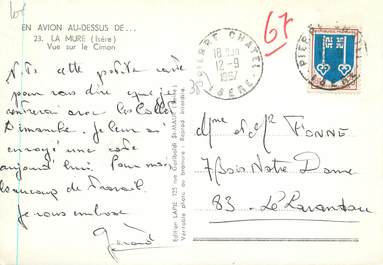 EN AVION AU-DESSUS DE...
23. LA MURE (Isère)
Vue sur le Cimon
67
PIERRE CHATEL
18 H
12-9
1967
ISÈRE
cette petite carte
pour vous dire que je
rentrerai avec les Collet
Dimanche. Je leur ai
envoyé une carte
aujourd'hui. Pour moi
beaucoup de travail.
Je vous embrasse
Gérard
Edition LAPIE 125 rue Garibaldi St-MAUR (Seine)
Véritable photo au bromure - Reprod. interdite
Mme et Mr FIONNE
7 Bis Notre Dame
83 - Le Lavandou